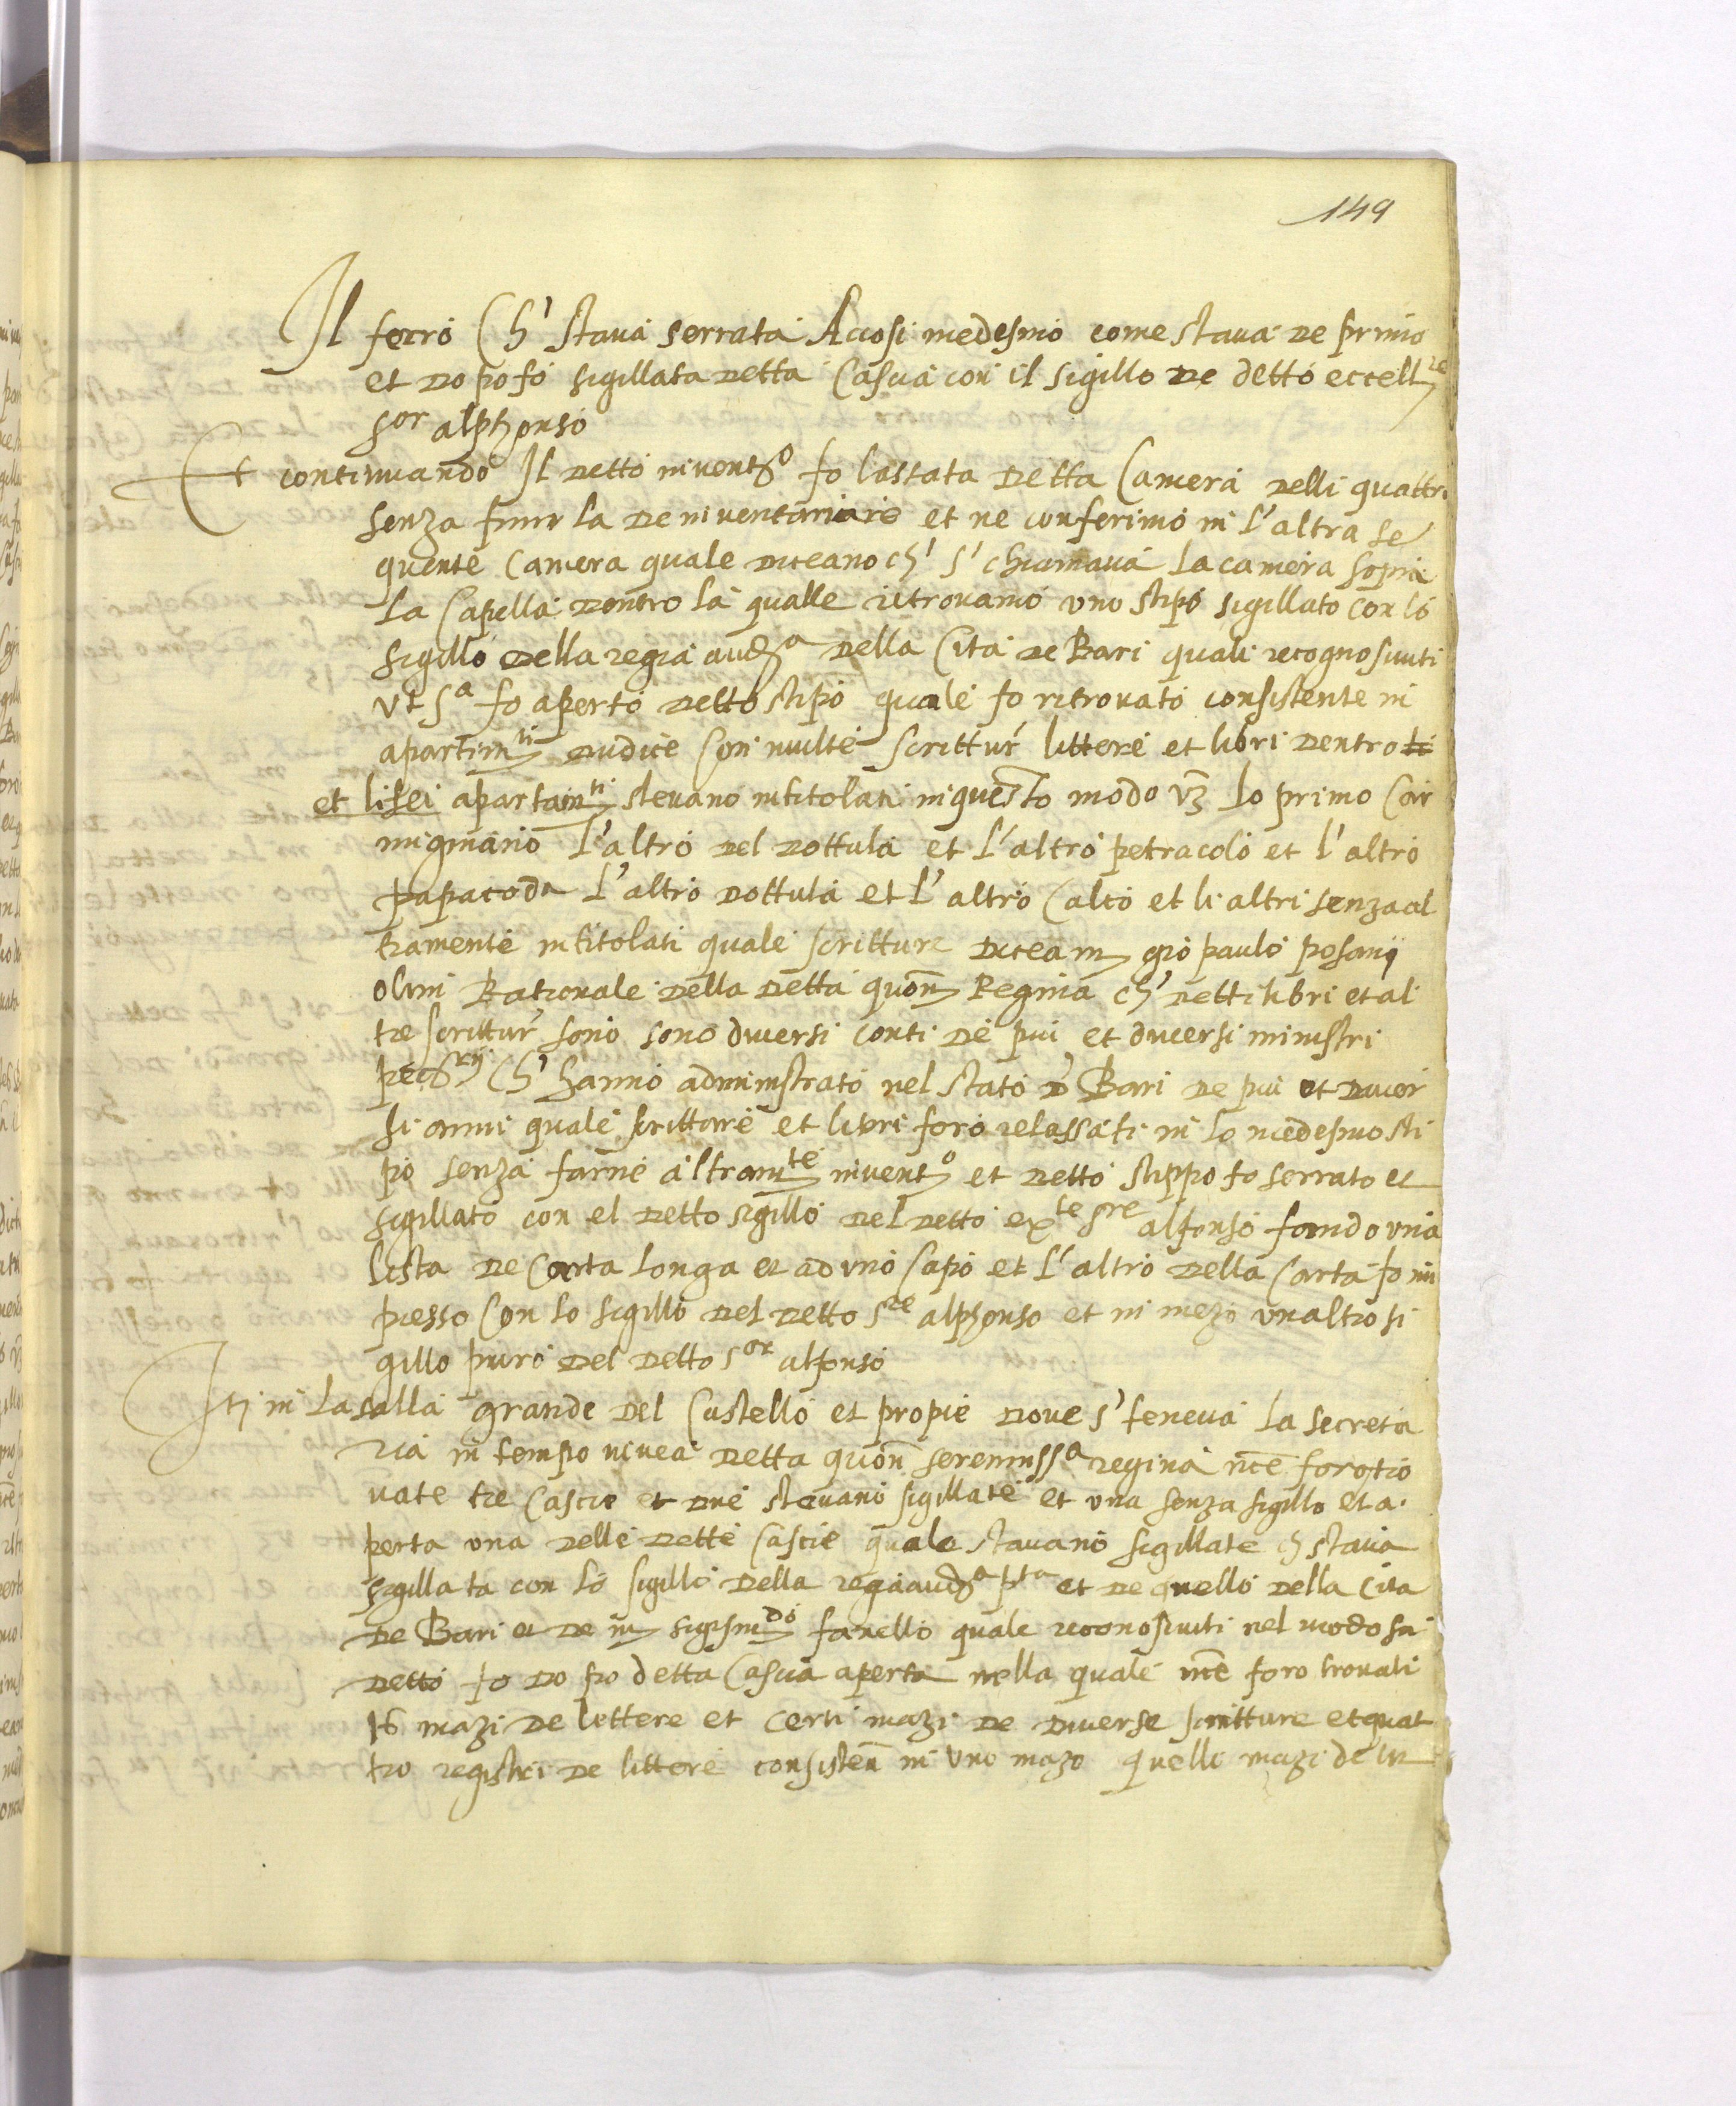 149
Il ferro ch' stava serrata Accosi medesmo come stava de primo
et dopo fo sigillata detta Cascia con il sigillo de detto eccell.re
s.or alphonso
Et continuando Il detto invent.o fo lassata detta Camera delli quattri
senza finirla de inventariare et ne conferimo in l'altra se
quente Camera quale diceano ch' s' chiamava la camera sopra
la Capella dentro la qualle ritrovamo uno stipo sigillato con lo
sigillo della regia aud.a della Cita de Bari quali recognosciuti
ut s.a fo aperto detto stipo quale fo ritrovato consistente in
apartim.ti dudice con multe scrittur' littere et libri dentro li
et li sei apartam.ti stevano intitolati in questo modo vz lo primo Car
mignano l'altro del dottula et l'altro petracolo et l'altro
papacoda l'altro dottula et l'altro Calco et li altri senza al
tramente intitolati quale scritture diceam gio paulo posanij
olim Rationale della detta quon Regina ch' detti libri et al
tre scrittur' sono sono diversi conti de piu et diversi ministri
pec.rij ch' hanno administrato nel stato d' Bari de piu et diver
si anni quale scritture et libri foro relassati in lo medesmo sti
po senza farne altram.te invent.o et detto stippo fo serrato et
sigillato con el detto sigillo del detto ex.te s.re alfonso facendo una
lista de Carta longa et ad uno Capo et l'altro della Carta fo im
presso con lo sigillo del detto s.re alphonso et in mezo un altro si
gillo puro del detto s.or alfonso
It in la salla grande del Castello et propie dove s' teneva la secreta
ria in tempo vivea detta quon serenissa regina nce foro tro
vate tre Cascie et due stevano sigillate et una senza sigillo et a
perta una delle dette Cascie quale stavano sigillate ch stava
sigillata con lo sigillo della regia aud.a p.ta et de quello della Cita
de Bari et de m sigism.do fanello quale reconosciuti nel modo su
detto fo dopo detta Cascia aperta nella quale nce foro trovati
16 mazi de lettere et certi mazi de diverse scritture et quat
tro registri de littere consisten in uno mazo quelli mazi de lit